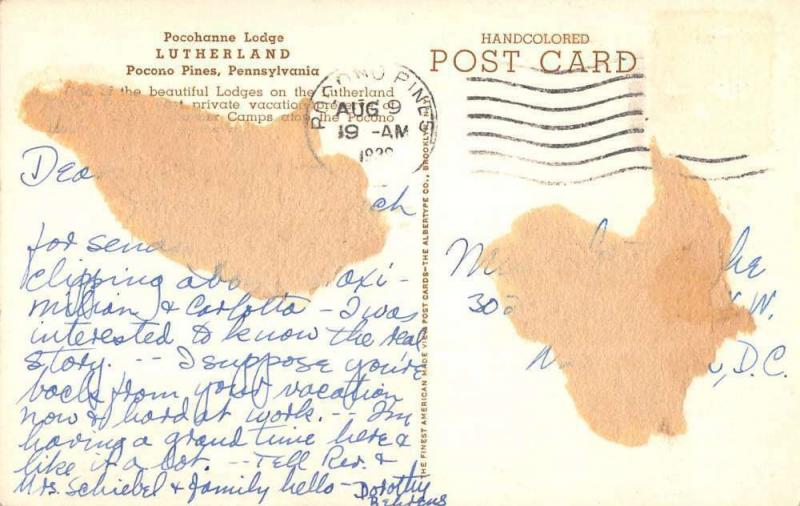 Pocohanne Lodge
LUTHERLAND
Pocono Pines, Pennsylvania
of the beautiful Lodges on the Lutherland
private vacation
Camps atop the Pocono
POCONO PINES
AUG 9
19 -AM
HANDCOLORED
POST CARD
THE FINEST AMERICAN MADE VIEW POST CARDS—THE ALBERTYPE CO., BROOKLYN, N.Y.
Dea
ch
for sen
clipping abo oxi-
milian & Carlotta - I was
interested to know the real
story. -- I suppose you're
back from your vacation
now & hard at work. -- I'm
having a grand time here &
like it a lot. -- Tell Rev. &
Mrs. Schiebel & family hello -
Dorothy
Behrens
M he
30 W.
, D.C.